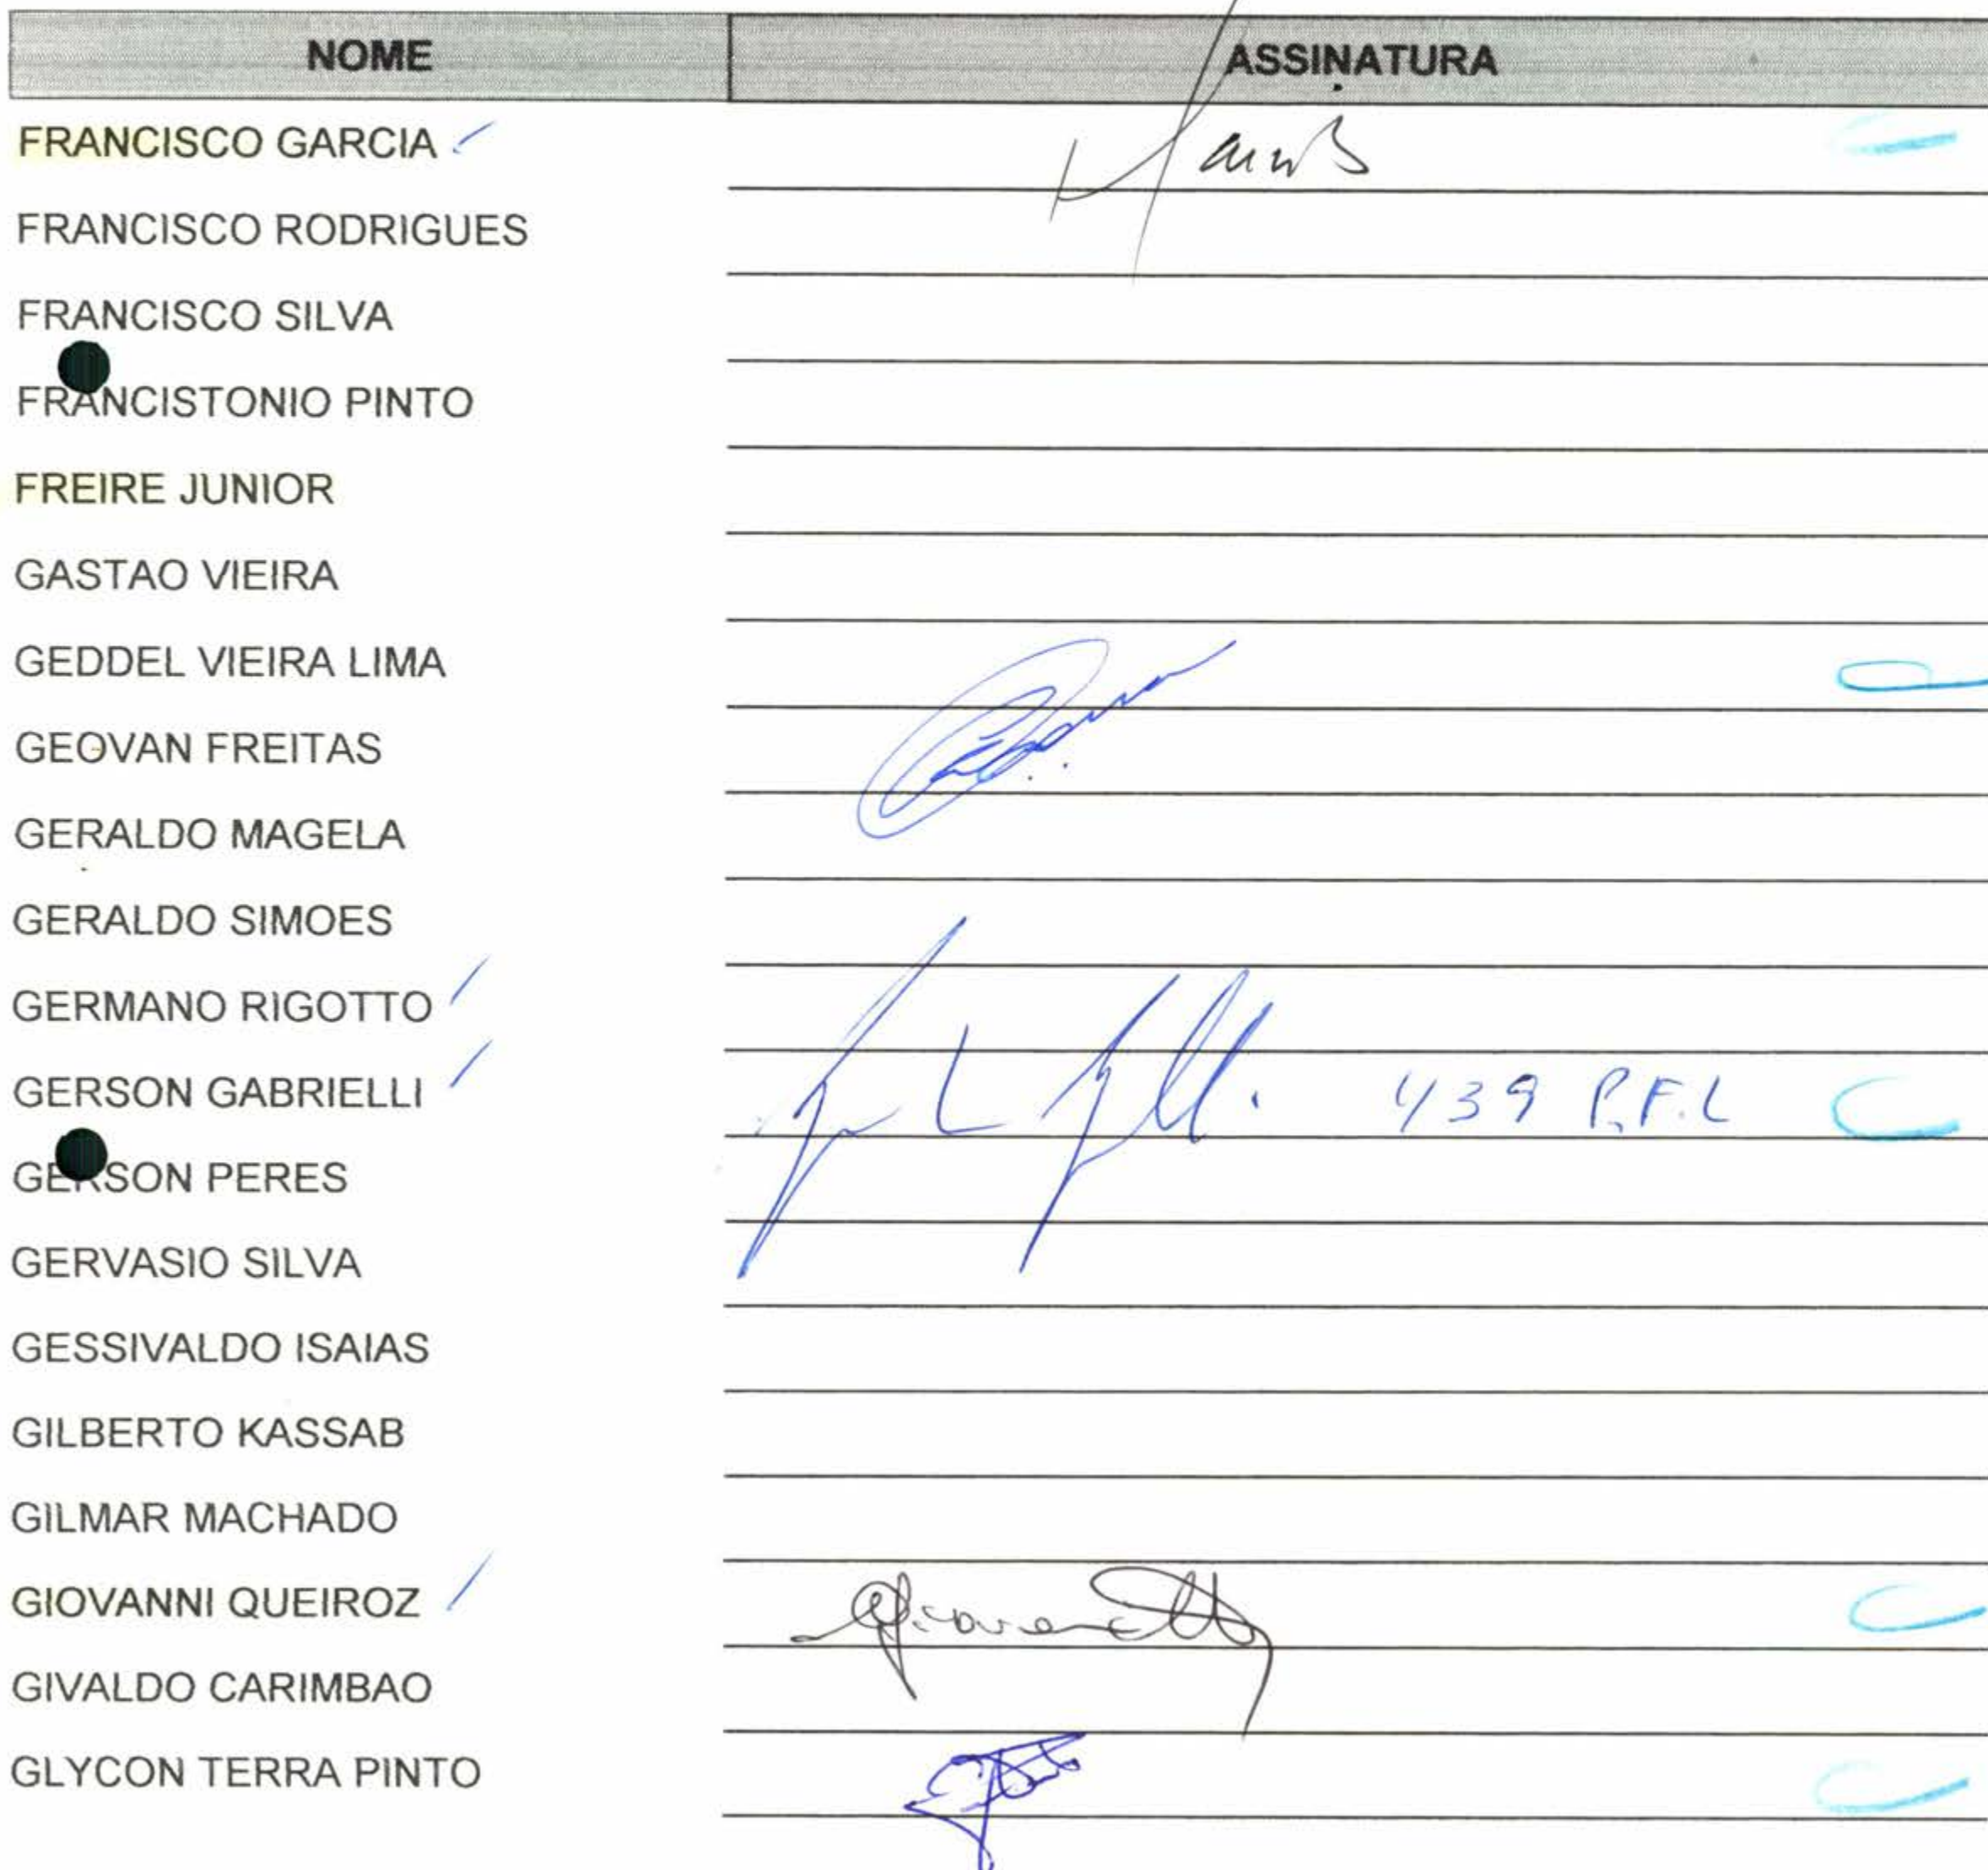 NOME ASSINATURA
FRANCISCO GARCIA
FRANCISCO RODRIGUES
FRANCISCO SILVA
FRANCISTONIO PINTO
FREIRE JUNIOR
GASTAO VIEIRA
GEDDEL VIEIRA LIMA
GEOVAN FREITAS
GERALDO MAGELA
GERALDO SIMOES
GERMANO RIGOTTO
GERSON GABRIELLI 439 P.F.L
GERSON PERES
GERVASIO SILVA
GESSIVALDO ISAIAS
GILBERTO KASSAB
GILMAR MACHADO
GIOVANNI QUEIROZ
GIVALDO CARIMBAO
GLYCON TERRA PINTO